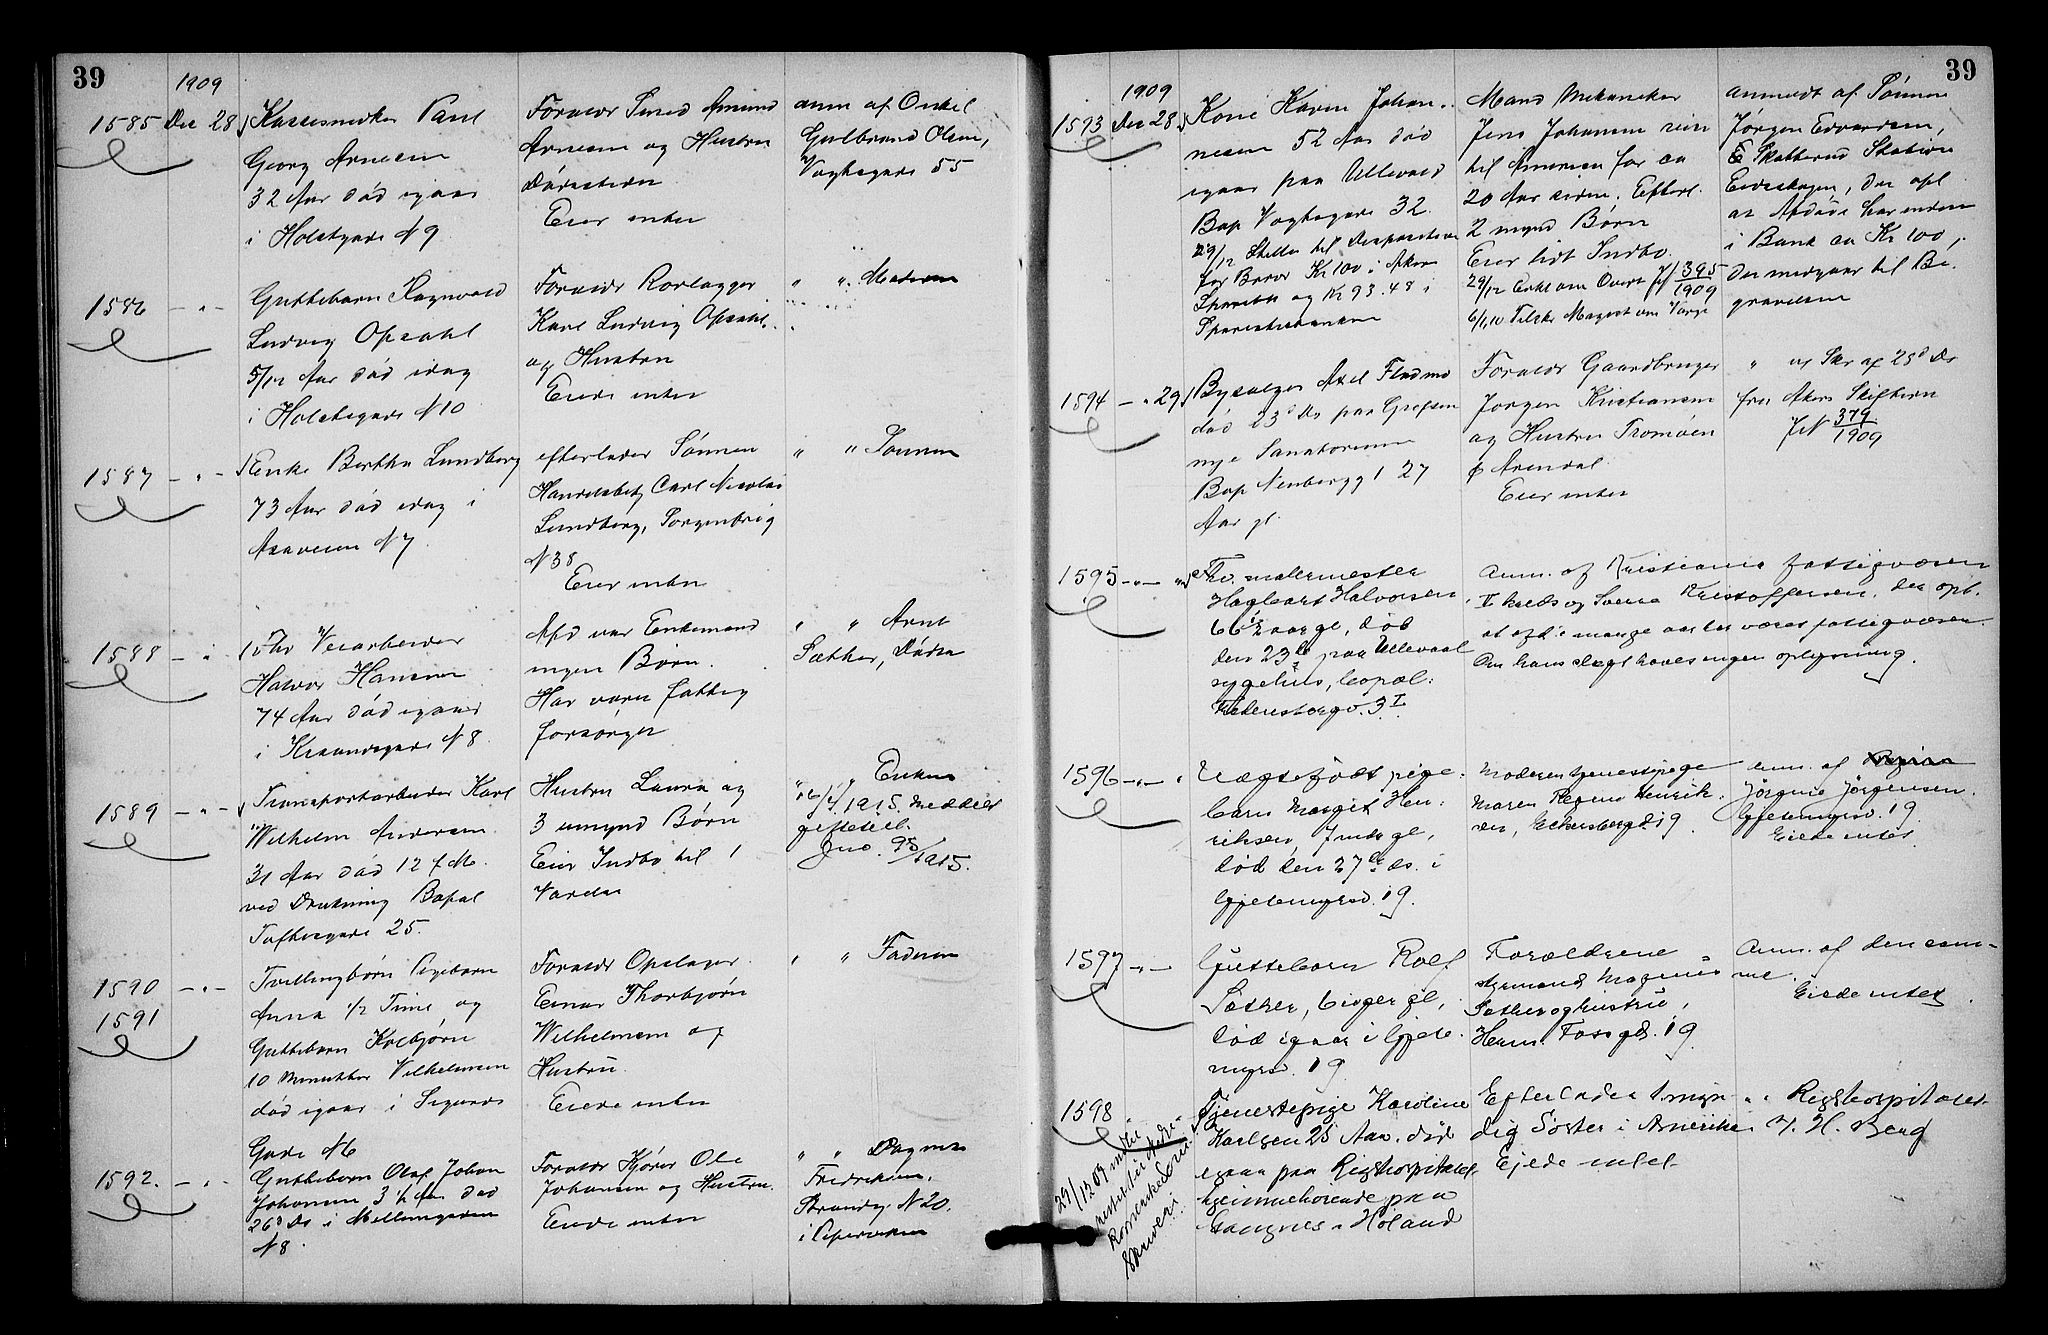 39
1909
1585 Dec 28 Kassesnedker Paul
Georg Arnesen
32 Aar død igaar
i Holstgade N 9
Forældr Smed Amund
Arnesen og Hustru
Eier intet
anm af Onkel
Gulbrand Olsen,
Vogtsgade 55
1586 - " - Guttebarn Ragnvald
Ludvig Opsahl
5/12 Aar død idag
i Holstsgade N 10
Forældr Rørlægger
Karl Ludvig Opsahl
og Hustru
Eiede intet
" " Moderen
1587 - " - Enke Bertha Lundberg
73 Aar død idag i
N 7
efterlader Sønnen
Handelsbetj Carl Nicolai
Lundberg, Sorgenfrig
N 38
Eier intet
" " Sønnen
1588 - " - Fhv Veiarbeider
Halvor Hansen
74 Aar død igaar
i Krsandsgade N 8
Afd var Enkemand
ingen Børn.
Har været fattig
forsørget
" " Arne
Sæther,
1589 - " - Transportarbeider Karl
Wilhelm Andersen
31 Aar død 12 f M.
ved Drukning Bopæl
Toftesgade 25.
Hustru Laura og
3 umynd Børn
Eier Indbo til
Værdi
" " Enken
16/4 1915 meddelt
gifteteil.
Jno. 95/1915.
1590 - " -
1591
Tvillingbørn Pigebarn
Anna 1/2 Time og
Guttebarn Kolbjørn
10 Minutter Vilhelmsen
død igaar i Sigurds
Gade N 6
Forældr Opslager
Einar Thorbjørn
Wilhelmsen og
Hustru
Eiede intet
" " Faderen
1592. - " - Guttebarn Olaf Johan
Johansen 3 1/2 Aar død
26d Ds i Møllergaden
N 8.
Forældr Kjører Ole
Johansen og Hustru
Eiede intet
" " Dagmar
Fredriksen,
Strandg N 20.
i Pipervken
39
1909
1593 Dec 28 Kone Karen Johan-
nesen 52 Aar død
igaar paa Ullevaal
Bop Vogtsgade 32.
29/12 Skiller til Disposition
for Børn Kr 100 i Akers
Sparebk og Kr 93.48 i
Mand Mekaniker
Jens Johansen rein
til Amerika for ca
20 Aar siden. Efterl.
2 mynd Børn
Eier lidt Indbo.
29/12 Erkl om Overt JN 395/1909
6/1 10 Tilskr Magist om Værge
anmeldt af Sønnen
Jørgen Edvardsen,
Skotterud Station
Eidskogen, der opl
at Afdøde har inden
i Bank ca Kr 100,
der medgaar til Be-
gravelsen
1594 - " 29 Bysælger Axel Flødmo
død 23d Ds paa Grefsen
nye Sanatorium
Bop Nenbergg 1 27
Aar gl.
Forældr Gaardbruger
Jørgen Kristiansen
og Hustru Tromøen
p Arendal
Eier intet
" ved Skr af 28d Ds
fra Akers Skifteret
JN 379/1909
1595 - " - Fhv. malermester
Hagbart Halvorsen
66 1/2 aar gl, død
den 23de paa Ullevaal
sygehus, bopæl:
3 I
Anm. af Kristiania fattigvæsen
V kreds og Sverre Kristoffersen, der opl.
at afd. i mange aar har været fattigvæsen
Om hans slegt haves ingen oplysning.
1596 - " - Uægtefødt pige-
barn Margit Hen-
riksen, 7 mdr gl,
død den 27de ds. i
Gjetemyrsv. 19.
Moderen tjenestepige
Maren Regine Henrik-
sen, Eckersbergsgd 19
Anm. af
Jørgine Jørgensen.
Gjetemyrsv. 19.
Eiede intet.
1597 - " - Guttebarn Rolf
Sæther, 6 uger gl,
død igaar i Gjete-
myrsv. 19.
Forældrene
Styrmand Magnus
Sæther og hustru,
Herm. Fossgd. 19
Anm. af den sam-
me.
Eiede intet.
1598 Tjenestepige Karoline
Karlsen 25 Aar. død
igaar paa Rigshospitalet
hjemmehørende paa
i Høland
Efterlader 1 myn
dig Søster i Amerika
Ejede intet
" " Rigshospitalet
v. H. Berg
29/12 09
Romerike
Skriveri